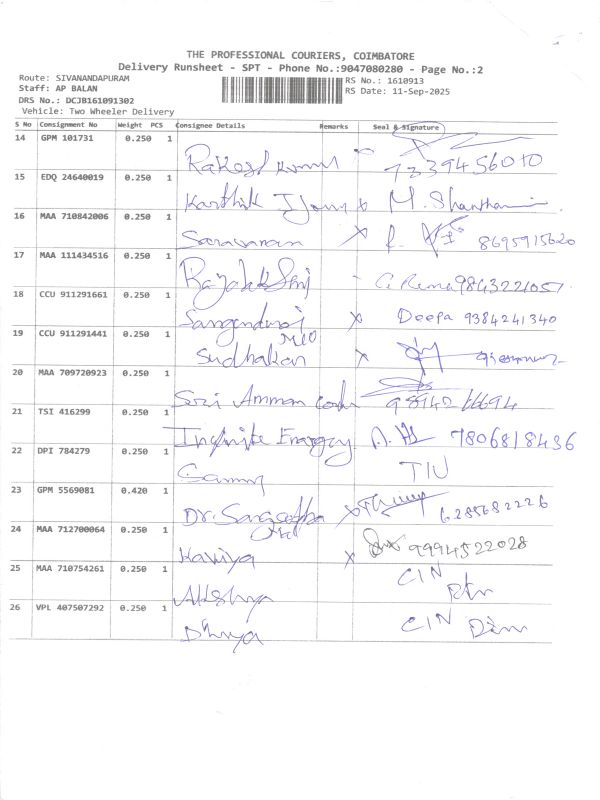 THE PROFESSIONAL COURIERS, COIMBATORE
Delivery Runsheet - SPT - Phone No.:9047080280 - Page No.:2
Route: SIVANANDAPURAM
Staff: AP BALAN
DRS No.: DCJB161091302
Vehicle: Two Wheeler Delivery
RS No.: 1610913
RS Date: 11-Sep-2025
S No Consignment No Weight PCS Consignee Details Remarks Seal & Signature
14 GPM 101731 0.250 1 Rakesh Kumar 7239456010
15 EDQ 24640019 0.250 1 Karthik x M. Shanthamani
16 MAA 710842006 0.250 1 Saravanan x R. 8695915620
17 MAA 111434516 0.250 1 Rajalakshmi - C. Rema 9843221057
18 CCU 911291661 0.250 1 x Deepa 9384241340
19 CCU 911291441 0.250 1 Sudhakar x
20 MAA 709720923 0.250 1 Sri Amman
21 TSI 416299 0.250 1 Infinite Energy 7806818436
22 DPI 784279 0.250 1 TIU
23 GPM 5569081 0.420 1 Dr. x 6285682226
24 MAA 712700064 0.250 1 Kaviya x 9994522028
25 MAA 710754261 0.250 1 Akshya CIN
26 VPL 407507292 0.250 1 Dhivya CIN